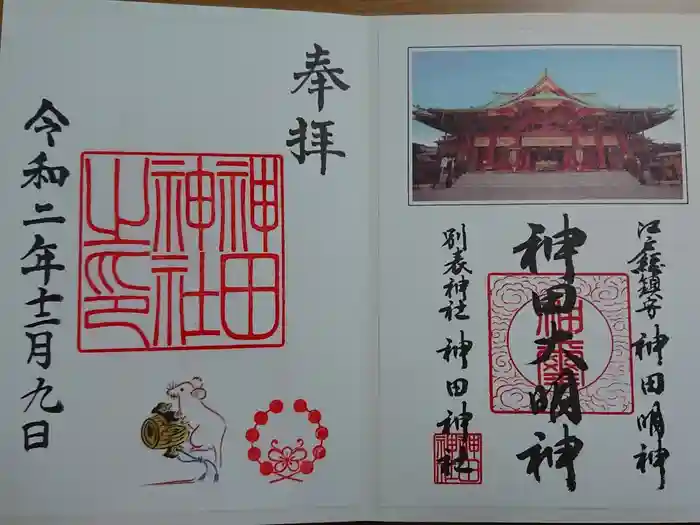 江戸総鎮守 神田明神
神田大明神
別表神社 神田神社
神田神社
奉拝
神田
神社
之印
令和二年十二月九日